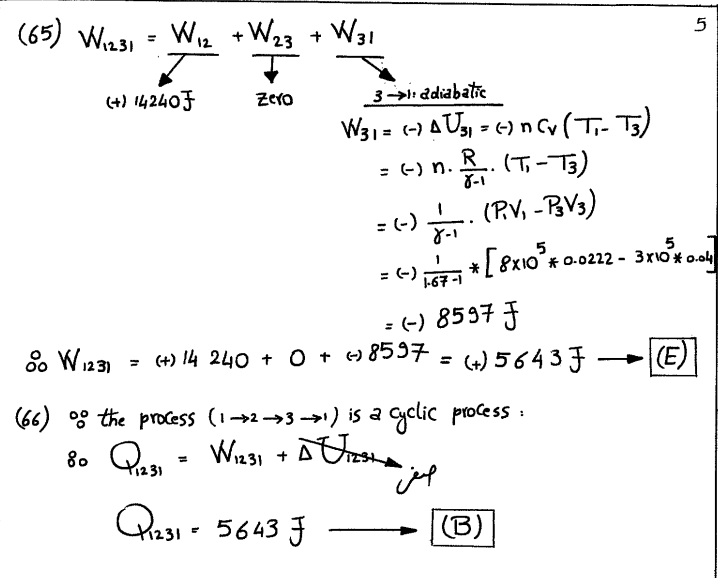 5
(65) W₁₂₃₁ = W₁₂ + W₂₃ + W₃₁
(+) 14240 J zero 3→1: adiabatic
W₃₁ = (-) ΔU₃₁ = (-) n Cv (T₁ - T₃)
= (-) n. R/(γ-1) . (T₁ - T₃)
= (-) 1/(γ-1) . (P₁V₁ - P₃V₃)
= (-) 1/(1.67-1) * [8x10⁵ * 0.0222 - 3x10⁵ * 0.04]
= (-) 8597 J
∴ W₁₂₃₁ = (+) 14 240 + 0 + (-) 8597 = (+) 5643 J → (E)
(66) ∵ the process (1→2→3→1) is a cyclic process :
∴ Q₁₂₃₁ = W₁₂₃₁ + ΔU₁₂₃₁ صفر
Q₁₂₃₁ = 5643 J → (B)